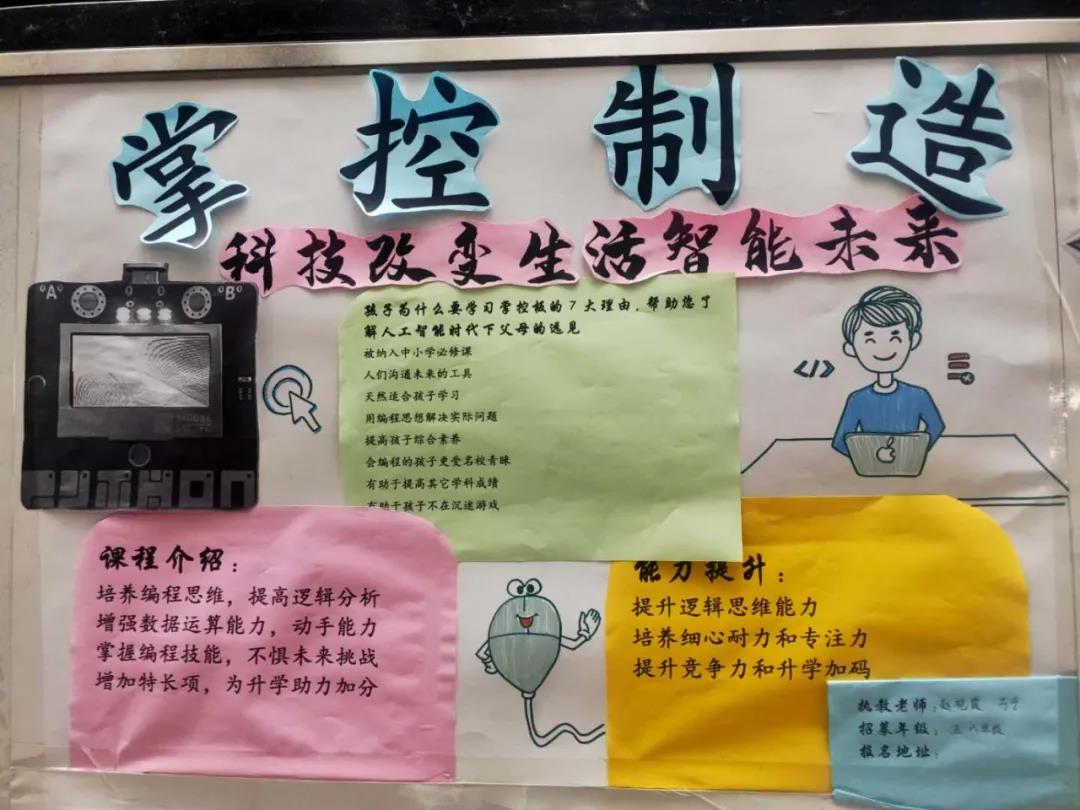 掌控制造
科技改变生活智能未来
"A" "B"
孩子为什么要学习掌控板的7大理由，帮助您了
解人工智能时代下父母的远见
被纳入中小学必修课
人们沟通未来的工具
天然适合孩子学习
用编程思想解决实际问题
提高孩子综合素养
会编程的孩子更受名校青睐
有助于提高其它学科成绩
有助于孩子不在沉迷游戏
</>
PYTHON
课程介绍：
培养编程思维，提高逻辑分析
增强数据运算能力，动手能力
掌握编程技能，不惧未来挑战
增加特长项，为升学助力加分
能力提升：
提升逻辑思维能力
培养细心耐力和专注力
提升竞争力和升学加码
执教老师：赵
招募年级：五 六年级
报名地址：